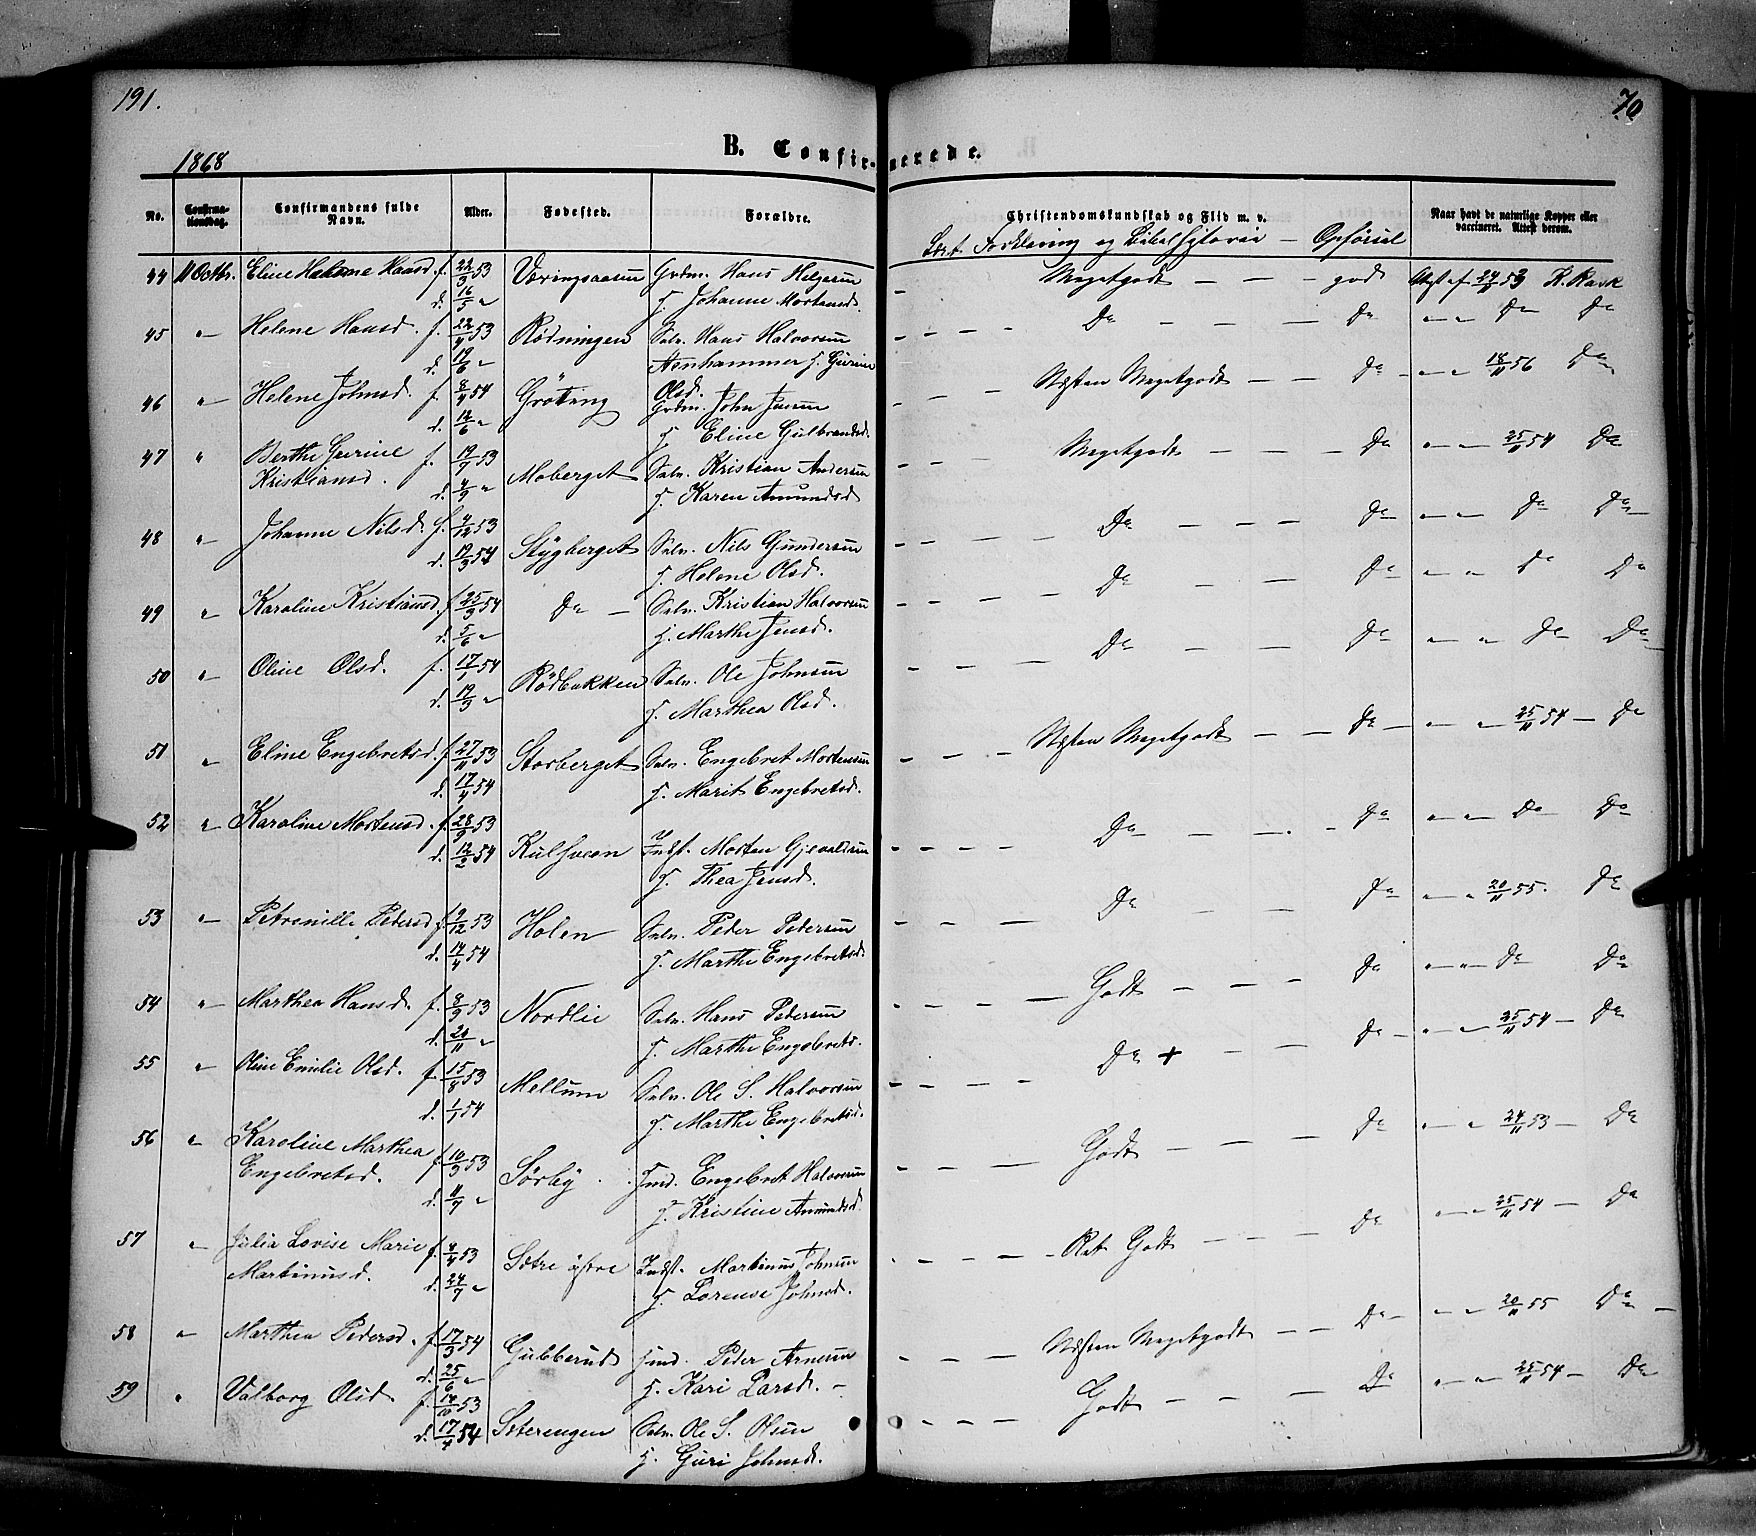 191.
70
1868
B. Confirmerede.
No. Confirmationsdag. Confirmandens fulde Navn. Alder. Fødested. Forældre. Christendomskundskab og Flid m. v. Naar havt de naturlige Kopper eller vaccineret. Attest derom.
Forklaring og Bibelhistorie — Opførsel
44 11 Octbr. Eline Helene Hansd. f. 22/3 53 Grdm. Hans Helgesen — Megetgodt — — — godt Attest af 24/11 53 R. Ravk
d. 16/5 " H. Johanne Mortensd.
45 " Helene Hansd. f. 22/4 53 Rødningen Selv. Hans Halvorsen — — — Do — — — Do " " Do Do
d. 19/6 " Arnhammer H. Gurine
Olsd.
46 " Helene Johnsd. f. 8/4 54 Grøting Grdm. John Jensen — — — Næsten Megetgodt — — Do — " " 18/11 56 Do
d. 12/6 " H. Eline Gulbrandsd.
47 " Berthe Gurine f. 19/7 53 Moberget Selv. Kristian Andersen — — — Megetgodt — — — Do " " 25/11 54 Do
Kristiansd. d. 4/9 " H. Karen Amundsd
48 " Johanne Nilsd. f. 4/12 53 Stygberget Selv. Nils Gundersen — — — — Do — — — Do " " Do Do
d. 19/3 54 H. Helene Olsd.
49 " Karoline Kristiansd. f. 25/3 54 Do — Selv. Kristian Halvorsen — — — — Do — — Do " " Do Do
d. 5/6 " H. Marthe Jensd.
50 " Oline Olsd. f. 17/1 54 Rødbakken Selv. Ole Johnsen — — — Do — — Do " " Do Do
d. 19/3 " H. Marthea Olsd.
51 " Eline Engebretsd. f. 27/11 53 Storberget Selv. Engebret Mortensen — — — Næsten Megetgodt — — Do — " " 25/11 54 — Do
d. 17/4 54 H. Marit Engebretsd.
52 " Karoline Mortensd. f. 28/9 53 Kulsveen Indst. Morten Gjevaldsen — — — — Do — — — Do " " Do Do
d. 12/2 54 H. Thea Jensd.
53 " Petronille Pedersd f. 9/12 53 Holen Selv. Peder Pedersen — — — Do — — Do " " 20/11 55. Do
d. 14/4 54 H. Marthe Engebretsd.
54 " Marthea Hansd. f. 8/9 53 Nordlie Selv. Hans Pedersen — — — — Godt — — — Do " " Do Do
d. 20/11 " H. Marthe Engebrets.
55 " Oline Emilie Olsd. f. 15/8 53 Mellum Selv. Ole S. Halvorsen — — — Do + — — Do — " " 25/11 54 — Do
d. 1/1 54 H. Marthe Engebretsd.
56 " Karoline Marthea f. 10/3 53 Sørby Engebret Halvorsen — — — Godt — — — Do " " 24/11 53 — Do
Engebretsd. d. 11/7 " H. Kristine Amundsd.
57 " Julia Lovise Marie f. 4/4 53 Sætre østre Indst. Martinus Johnsen — — — — Ret Godt — — — Do " " 25/11 54 — Do
Martinusd. d. 24/7 " H. Lorense Johnsd.
58 " Marthea Pedersd. f. 17/3 54 Gubberud Peder Arnesen — — — Næsten Megetgodt — — Do — " " 20/11 55 Do —
d. 25/6 " H. Kari Larsd. —
59 " Valborg Olsd f. 14/10 53 Seterengen Selv. Ole S. Olsen — — — — Godt — — — Do " " 25/11 54 — Do
d. 17/4 54 H. Guri Johnsd.